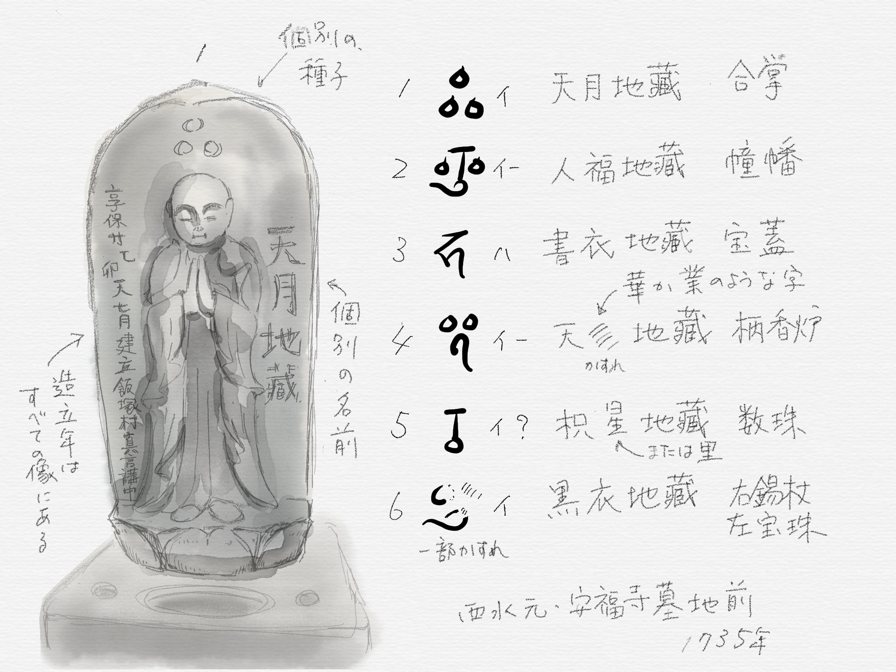 1
個別の
種子
享保廿乙
卯天七月建立飯塚村真言講中
天月地蔵
個別の名前
造立年は
すべての像にある
1 イ 天月地蔵 合掌
2 イー 人福地蔵 幢幡
3 ハ 書衣地蔵 宝蓋
華か業のような字
4 イー 天 地蔵 柄香炉
かすれ
5 イ? 枳星地蔵 数珠
または里
6 イ 黒衣地蔵 右錫杖
左宝珠
一部かすれ
西水元・安福寺墓地前
1735年